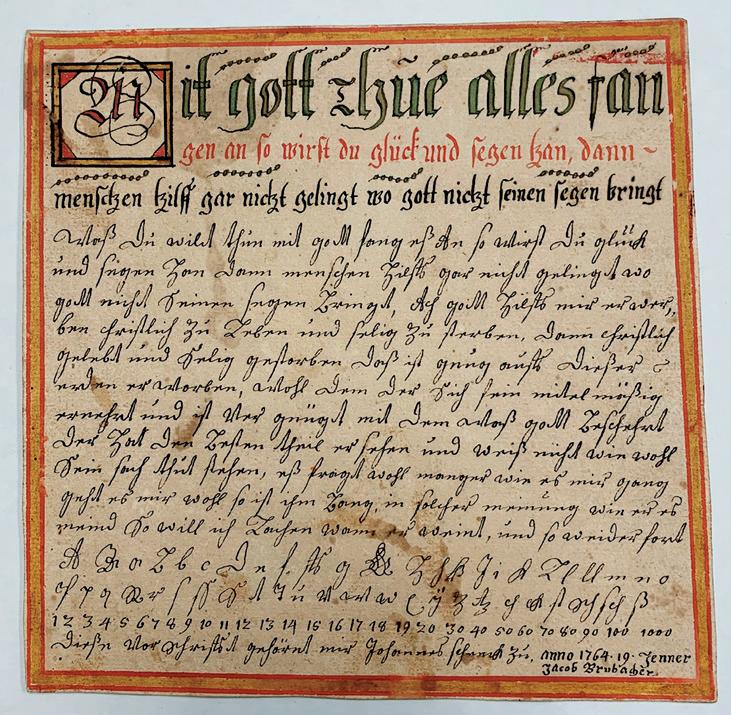 Mit gott Thue alles fan
gen an so wirst du glück und segen han, dann ~
menschen hilff gar nicht gelingt wo gott nicht seinen segen bringt
Waß Du wilst thun mit gott fang eß An so wirst Du glück
und segen Han Dann menschen Hilfft gar nicht gelingt wo
gott nicht Seinen segen Bringt, Ach gott Hilfft mir erwer,,
ben christlich Zu Leben und selig Zu sterben, Dann christlich
gelebt und Selig gestorben Daß ist gnug auff Dießer
erden erworben, Wohl Dem Der Sich fein mitelmäßig
ernehrt und ist Ver gnügt mit dem Waß gott Beschehrt
Der Hat Den Besten theil er sehen und weiß nicht wie wohl
Sein sach thut stehen, eß fragt wohl manger wie es mir gang
geht es mir wohl so ist ihm Bang, in solcher meinung wie er es
meind So will ich Lachen wann er weint, und so weider fort
A B a B b c D e f ff g H h J i K L l m n o
p q R r s ss S t T u v w x y z tz ch ck st sch sch ß
1 2 3 4 5 6 7 8 9 10 11 12 13 14 15 16 17 18 19 20 30 40 50 60 70 80 90 100 1000
Dieße Vorschrifft gehörnt mir Johannes schenck Zu, anno 1764 · 19 · Jenner
Jacob Brubacher